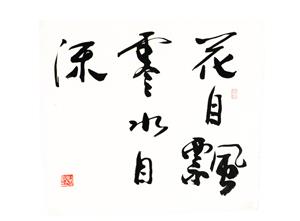 花自飄
零水自
流